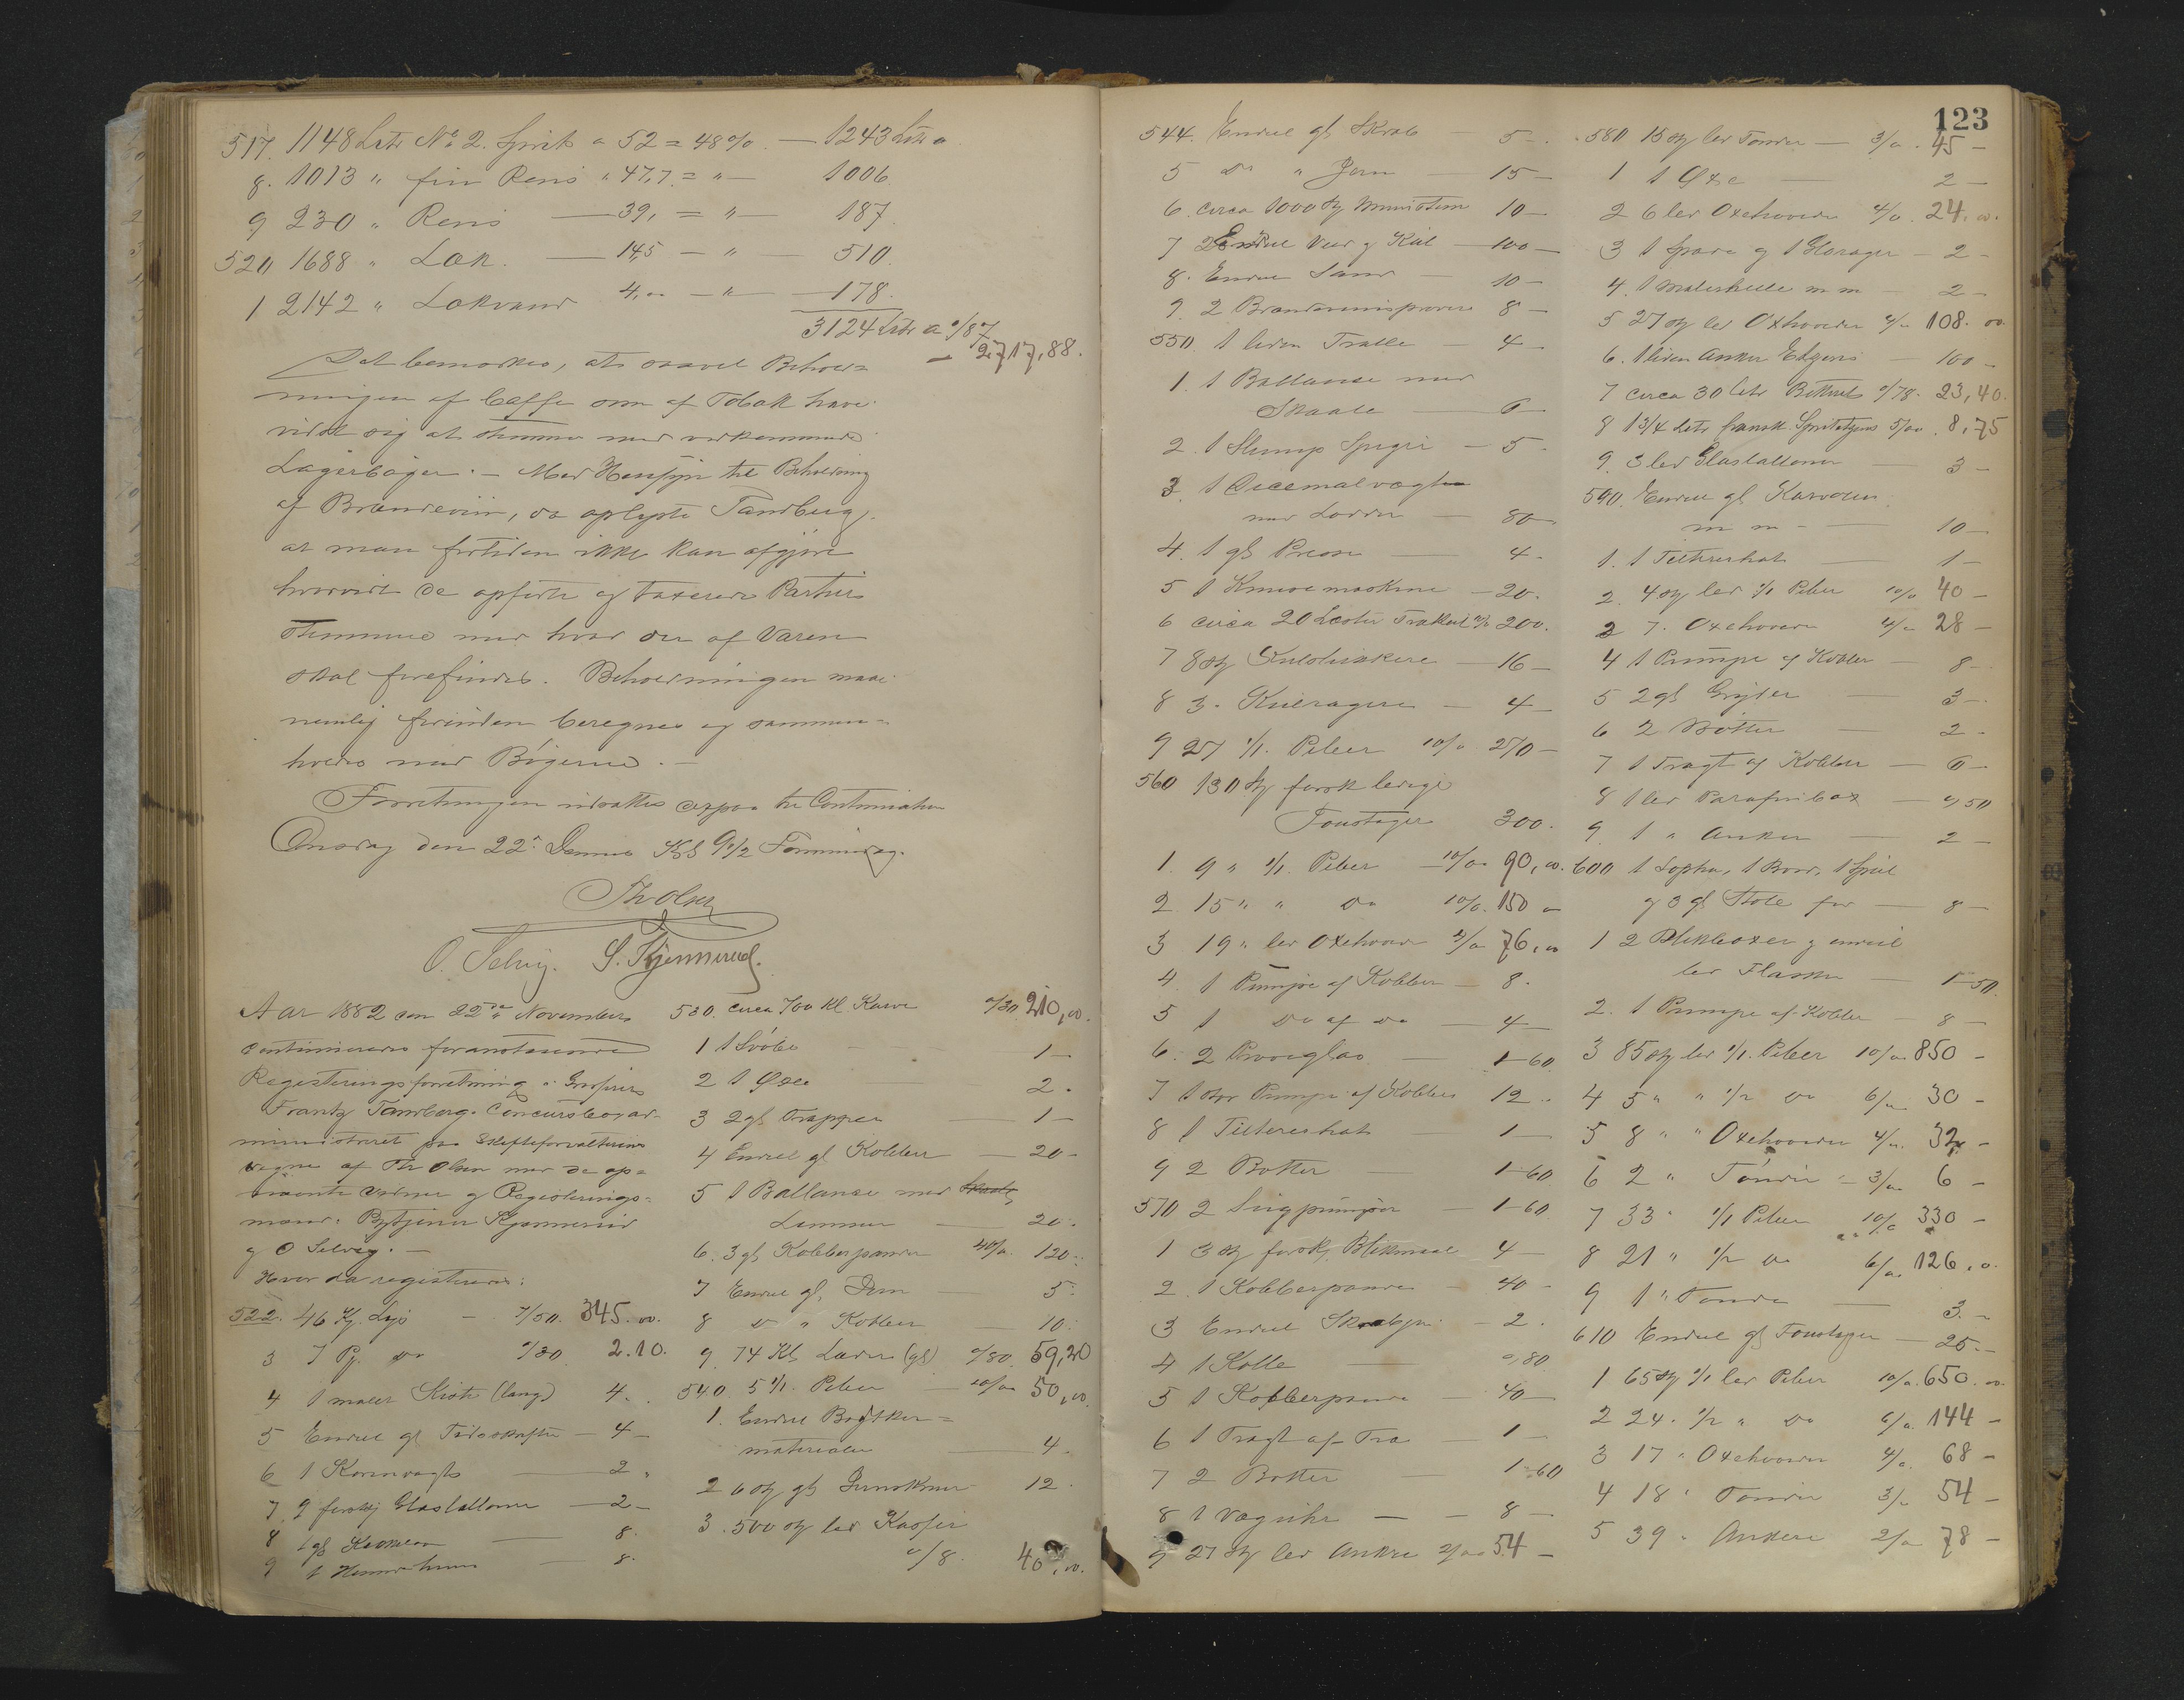 517. 1148 Lit. No 2. Sprit a 52 = 48% — 1243 Litr a
8. 1013 " fin Rens " 47,7 = " — 1006
9 230 " Rens — 39, = " — 187
520 1688 " Lak. — 14,5 — " — 510
1 2142 " Lakvand 4,00 — " — 178.
3124 Litr a 0/87
— 2717,88.
Det bemærkes, at saavel Behold=
ningen af Caffe som af Tobak have
vidst sig at stemme med vedkommende
Lagerbøger. — Med Hensyn til Beholdning
af Brændeviin, da oplyste Tandberg,
at man fortiden ikke kan afgjøre
hvorvidt de opførte og taxerede Partier
stemme med hvad der af Varen
skal forefindes. Beholdningen maa
nemlig forinden beregnes og sammen=
holdes med Bøgerne. —
Forretningen udsattes derpaa til Continuation
Onsdag den 22de Dennes Kl 9 1/2 Formiddag.
Th Olsen
O. Selvig. S. Kjennerud.
Aar 1882 den 22de November
continueredes foranstaaende
Registreringsforretning i Grosserer
Frantz Tandberg. Concursbo, ad-
ministreret paa Skifteforvalterens
vegne af Th Olsen med de op=
nævnte Vidner og Registrerings=
mænd: Bytjener Kjennerud
og O Selvig. —
Hvor da registreredes:
522. 46 Kg. — 7/50. 345.00.
3 7 Pj. do 0/30 2.10.
4 1 malet Kiste (lang) 4.
5 Endel gl — 4 —
6 1 Kornvægt — 2.
7 2 forskj Glasballoner — 2 —
8 1 gl — 8.
9 1 — 8.
530. circa 700 Kl Karve 0/30 210,00.
1 1 — 1 —
2 1 Øxe 2.
3 2 gl Trapper — 1 —
4 Endel gl Kobber — 20 —
5 1 Ballance med
Lemmer — 20.
6. 3 gl Kobberpander 40/a. 120.
7 Endel gl. — 5.
8 do " Kobber — 10.
9. 74 Kl Læder (gl) 0/80. 59,20
540 5 1/1. Piber — 10/00 50,00.
1. Endel Bødker=
materialer — 4.
2 6 st gl 12.
3. 500 st led
0/8. 40,00.
123
544. Endel gl Skrab — 5 —
5 do " Jern — 15 —
6. circa 1000 st Muursteen 10 —
7 Endel Ved og Kul — 100 —
8. Endel Sand — 10 —
9. 2 Brændeviinsprøver 8 —
550. 1 liden Tralle — 4 —
1. 1 Ballance med
Skaale — 6 —
2. 1 Slump Spiger — 5.
3. 1 Decemalvægt
med Lodder — 80 —
4. 1 gl Presse — 4 —
5 1 — 20.
6 circa 20 Læster 200.
7 8 st — 16 —
8 3. — 4 —
9 27 1/1. Piber 10/a 270 —
560 130 st forsk ledige
Foustager 300.
1. 9 " 1/1. Piber 10/00 90,00.
2 15 " " do 10/0. 150 —
3 19 " led Oxehoveder 4/a 76,00
4. 1 Pumpe af Kobber — 8.
5 1 do af do — 4 —
6. 2 Prøveglas — 1-60.
7 1 stor Pumpe af Kobber 12 ..
8 1 — 1 —
9 2 Bøtter — 1-60
570 2 — 1-60.
1 3 st forsk. Blikmaal 4 —
2. 1 Kobberpande — 40 —
3 Endel — 2.
4 1 Kolle — 0,80
5 1 Kobberpande — 40 —
6 1 Tragt af Træ — 1 —
7 2 Bøtter — 1-60
8 1 — 8 —
9 27 st led Ankre 2/00 54 —
580 15 st led Tønder — 3/a. 45 —
1 1 Øxe — 2 —
2 6 led Oxehoveder 4/a. 24,00.
3 1 Spade og 1 — 2 —
4. 1 m m — 2 —
5 27 st led Oxhoveder 4/a 108.00.
6. 1 liden Anker — 100 —
7 circa 30 Litr 0/78. 23,40.
8 1 3/4 Litr fransk. 5/00. 8,75
9. 3 led Glasballoner — 3 —
590. Endel gl
m m — 10 —
1. 1 — 1 —
2. 4 st led 1/1 Piber 10/0 40 —
3 7. Oxehoveder 4/a 28 —
4 1 Pumpe af Kobber — 8 —
5 2 gl Gryder — 3 —
6 2 Bøtter — 2.
7 1 Tragt af Kobber — 6 —
8 1 led Parafinbox — 0,50
9. 1 " Anker — 2 —
600 1 Sopha, 1 Bord, 1 Speil
og 3 gl Stole for — 8 —
1 2 Blikboxer og endeel
led Flasker — 1-50.
2. 1 Pumpe af Kobber — 8 —
3 85 st led 1/1. Piber 10/00 850 —
4 5 " " 1/2 do 6/00 30 —
5 8 " " Oxehoveder 4/a. 32 —
6 2 " Tønder 3/a. 6 —
7 33 " 1/1 Piber 10/a 330 —
8 21 " 1/2 do 6/a. 126.0
9 1 " Tønde — 3. —
610 Endel gl Foustager — 25. —
1 65 st 1/1 led Piber 10/a. 650.00
2 24. 1/2 " do 6/a 144 —
3 17 " Oxehoveder 4/a. 68 —
4 18 " Tønder 3/a 54 —
5 39 " Ankere 2/a 78 —